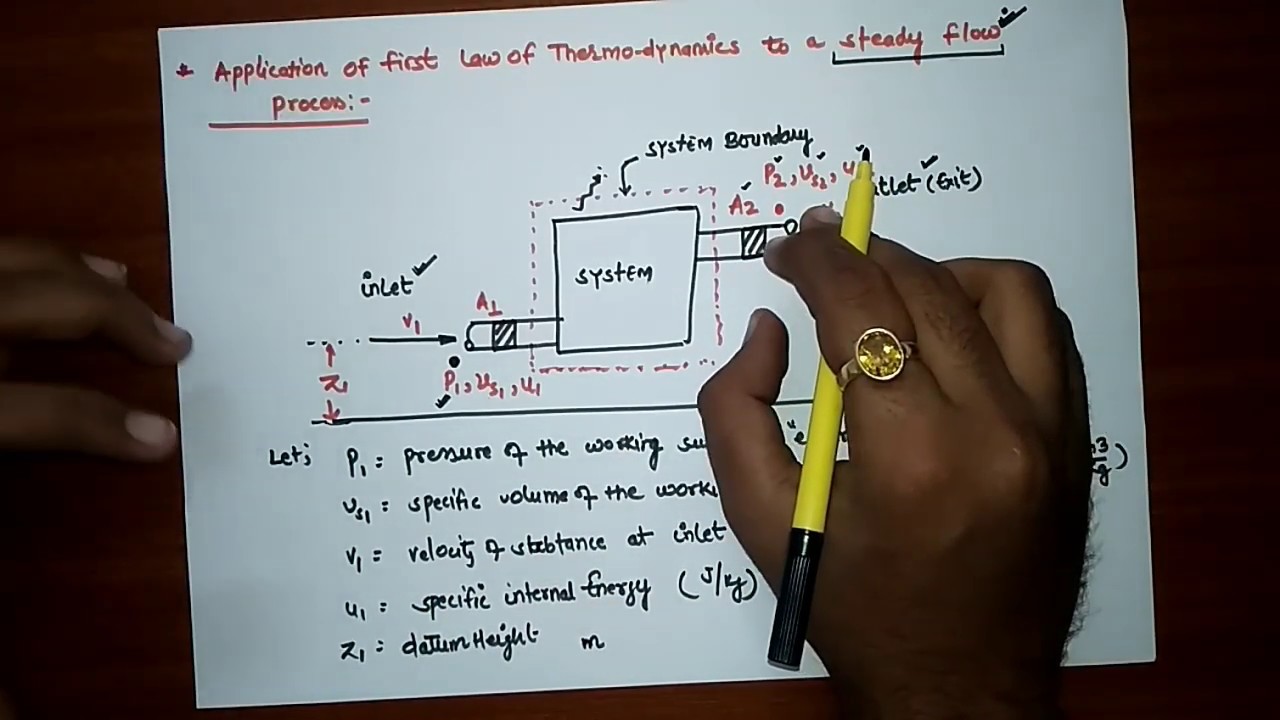 * Application of first Law of Thermo-dynamics to a steady flow
process:-
system Boundary
P2, vs2, u
outlet (Exit)
A2
system
inlet
A1
V1
Z1
P1, vs1, u1
Let; P1 = pressure of the working
vs1 = specific volume of the
V1 = velocity of stubtance at inlet
u1 = specific internal Energy (J/kg)
Z1 = datum Height m